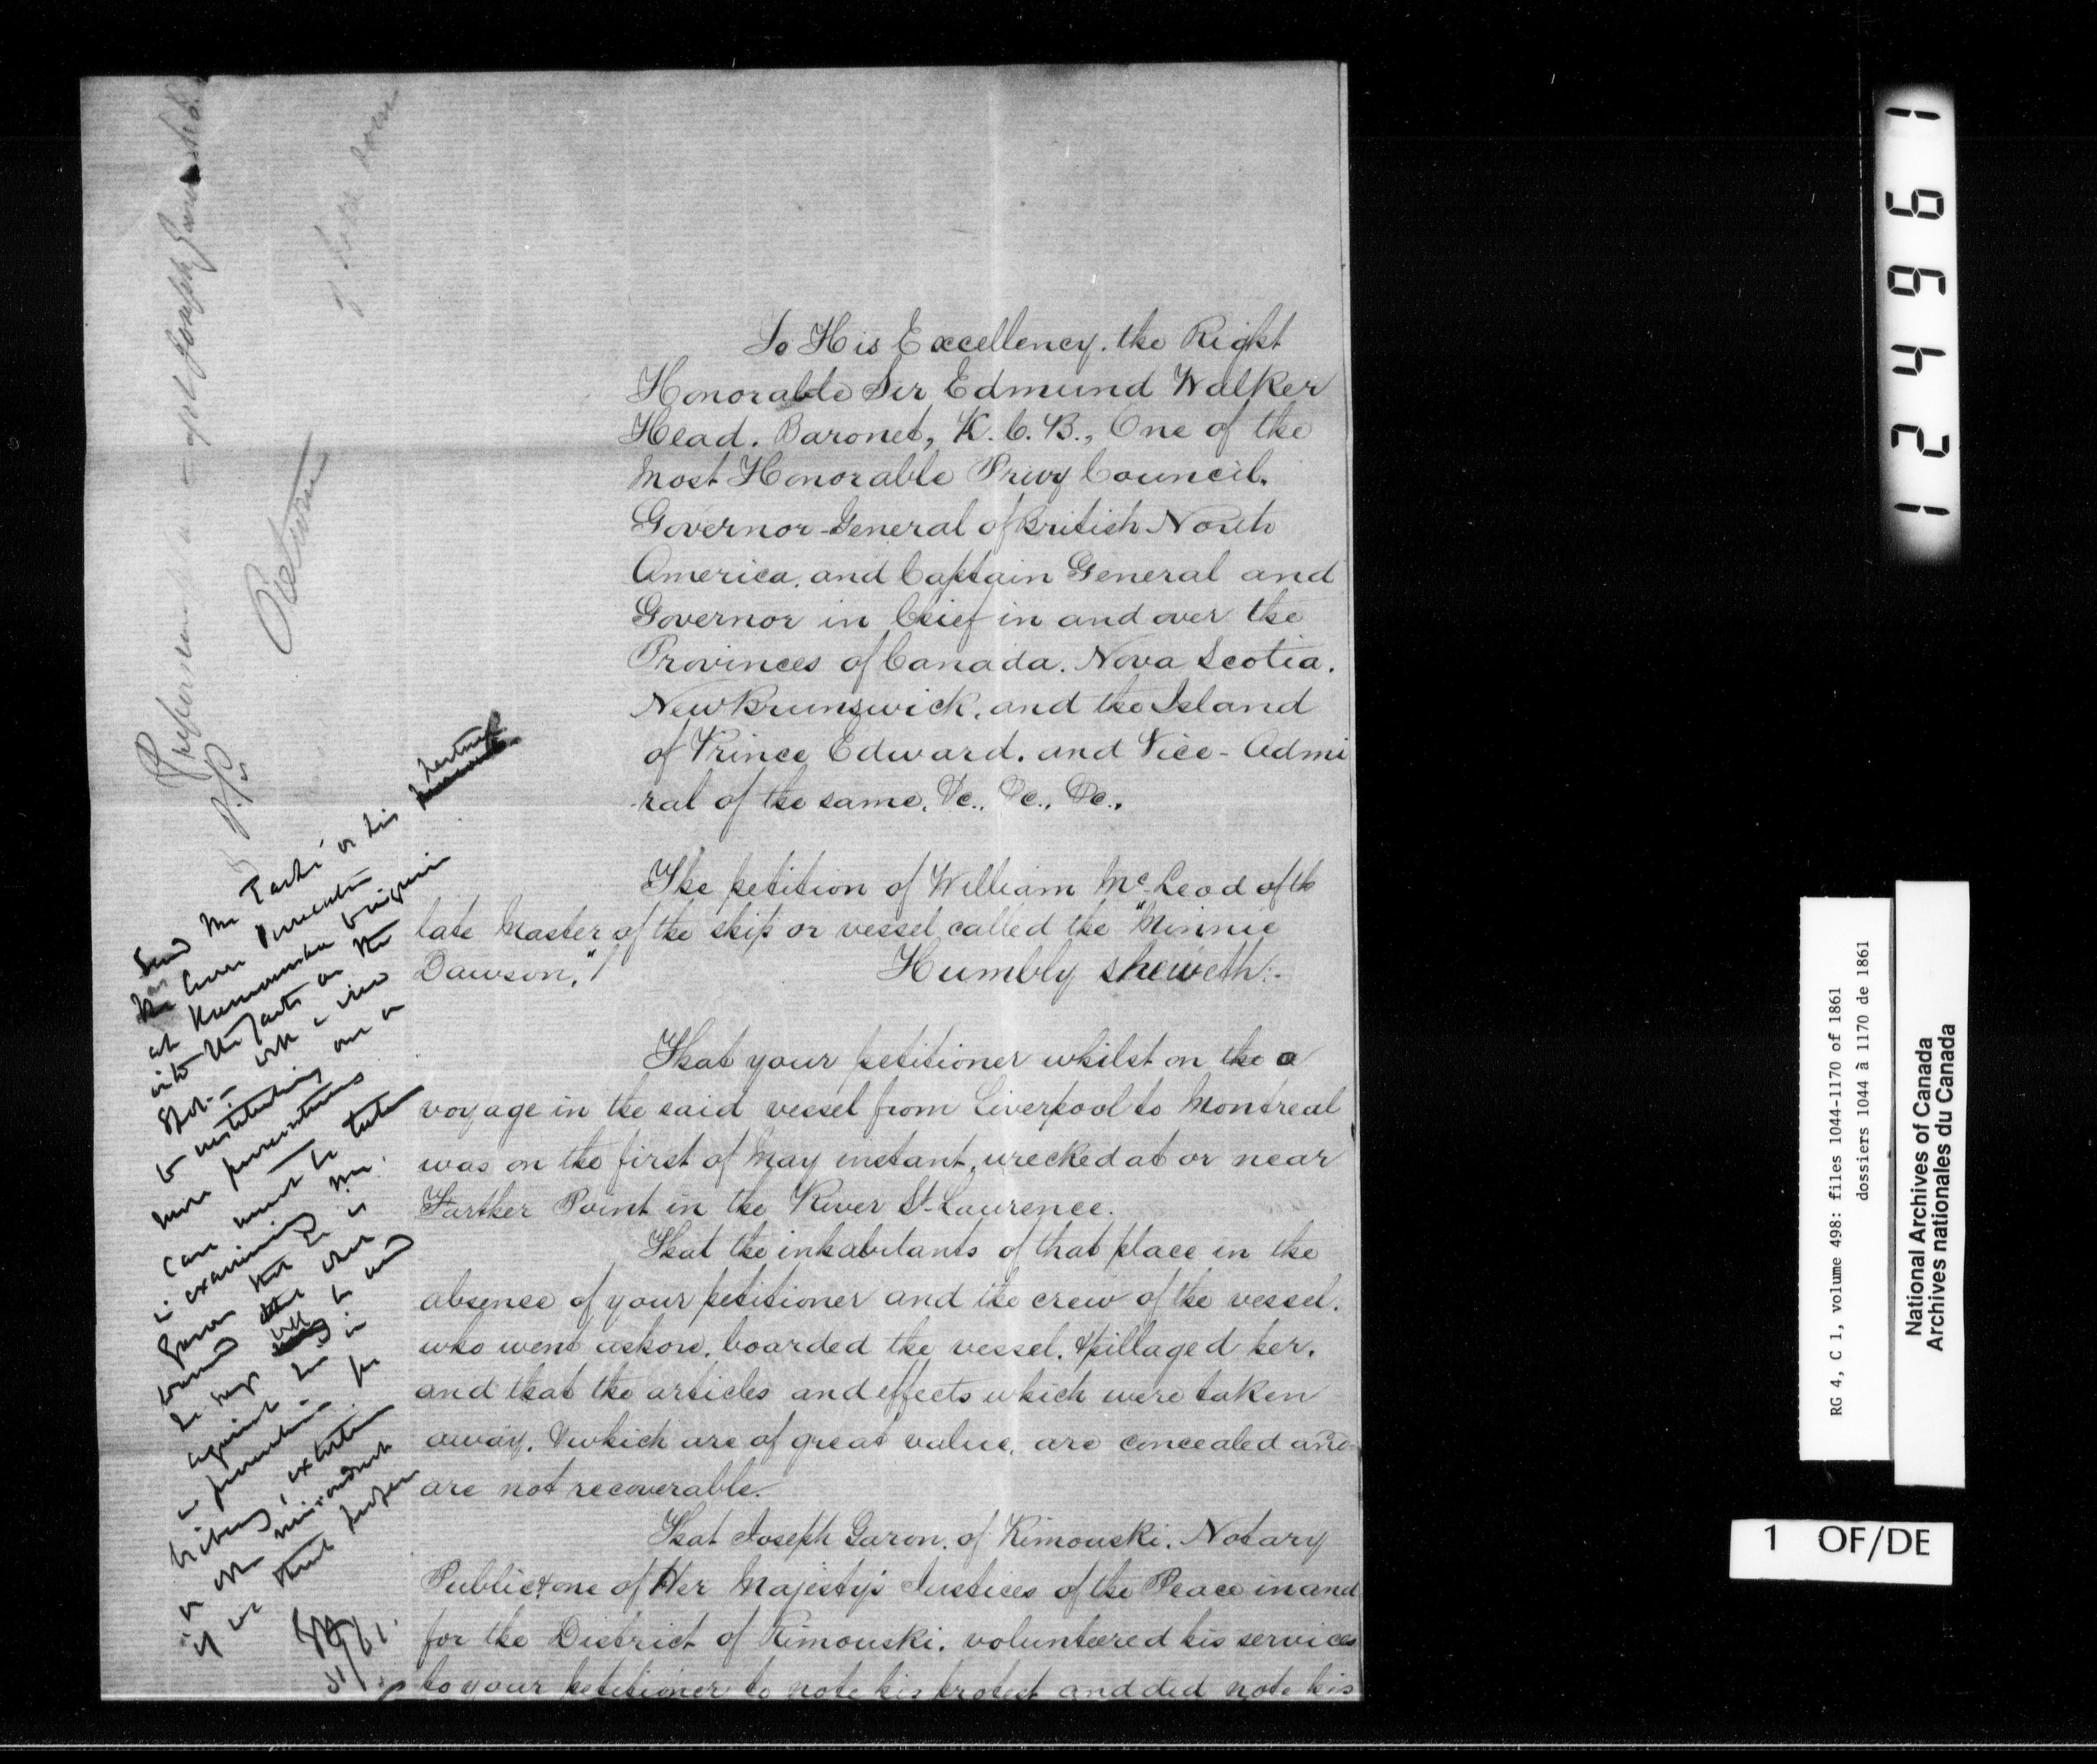 To His Excellency, the Right
Honorable Sir Edmund Walker
Head. Baronet, K.C.B., One of the
Most Honorable Privy Council.
Governor-General of British North
America, and Captain General and
Governor in Chief in and over the
Provinces of Canada. Nova Scotia.
New Brunswick, and the Island
of Prince Edward. and Vice-Admi
-ral of the same, &c., &c., &c.,
The petition of William McLeod of th
late Master of the ship or vessel called the "Minnie
Dawson,"
Humbly sheweth:-
That your petitioner whilst on the a
voyage in the said vessel from Liverpool to Montreal
was on the first of May instant, wrecked at or near
Farther Point in the River St. Laurence.
That the inhabitants of that place in the
absence of your petitioner and the crew of the vessel.
who went ashore, boarded the vessel. & pillaged her.
and that the articles and effects which were taken
away. & which are of great value, are concealed and
are not recoverable.
That Joseph Garon. of Rimouski. Notary
Public & one of Her Majesty's Justices of the Peace in and
for the District of Rimouski. volunteered his services
to your petitioner to note his protest and did note his
Return
Send Mr Taché or his
at Kamouraska to inquire
into the facts on the
spot - with a view
to instituting one or
more prosecutions
Care must be taken
in examining Mr.
Garon that he is
warned that what
he says will be used
against him in
a prosecution for
bribery, extortion
or other misconduct
if we think proper
124961
RG 4, C 1, volume 498: files 1044-1170 of 1861
dossiers 1044 à 1170 de 1861
National Archives of Canada
Archives nationales du Canada
1 OF/DE